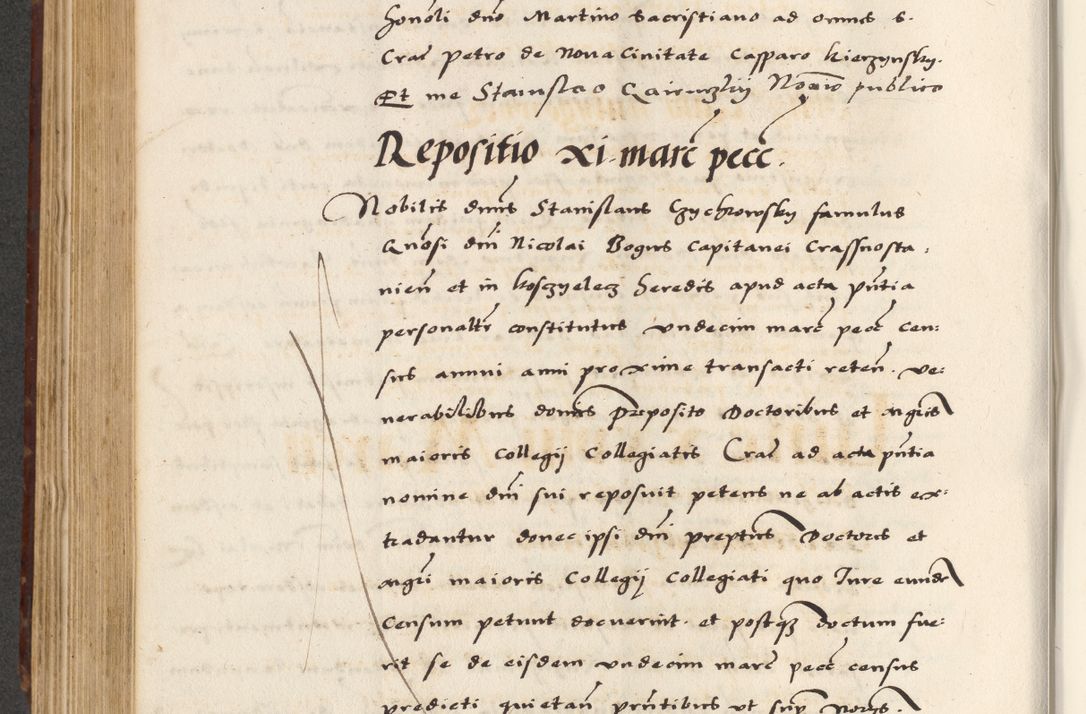 honoli dno Martino Sacristiano ad omnes s.
Crac Petro de Nova Civitate Casparo Kierzynsky.
Et me Stanislao Notario publico
Repositio xi. marc pecc.
Nobilis dnus Stanislaus Czychrowsky famulus
Gnosi dni Nicolai Bogus Capitanei Crassnosta,
nien et in Kosczyelecz heredis apud acta pntia
personaltr constitutus undecim marc pecc cen:
sus annui anni proxime transacti reten. ve:
nerabilibus domis preposito Doctoribus et mgris
maioris Collegij Collegiatis Crac ad acta pntia
nomine dni sui reposuit petens ne ab actis ex:
tradantur donec ipsi dni prepttus Doctores et
mgri maioris Collegij Collegiati quo Jure eundem
Censum petunt docuerint. et postq doctum fue:
rit se de eisdem undecim marc pecc census
predicti quietan prntibus ut sup Noris.